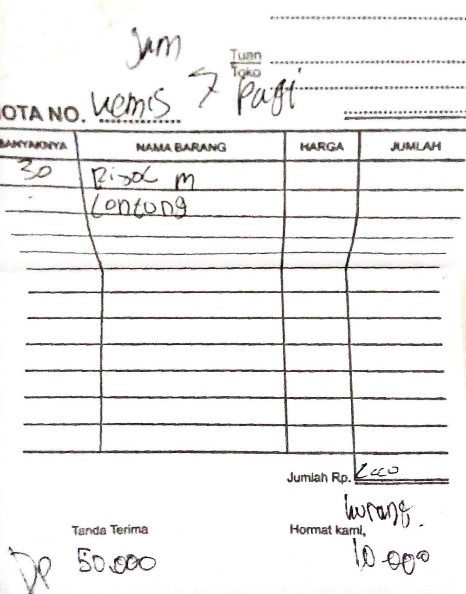 Jam
Tuan
Toko
OTA NO. Kemis 7 pagi
BANYAKNYA NAMA BARANG HARGA JUMLAH
30 Risol m
Lontong
Jumlah Rp.
kurang.
Tanda Terima Hormat kami,
Dp 50.000 10.000